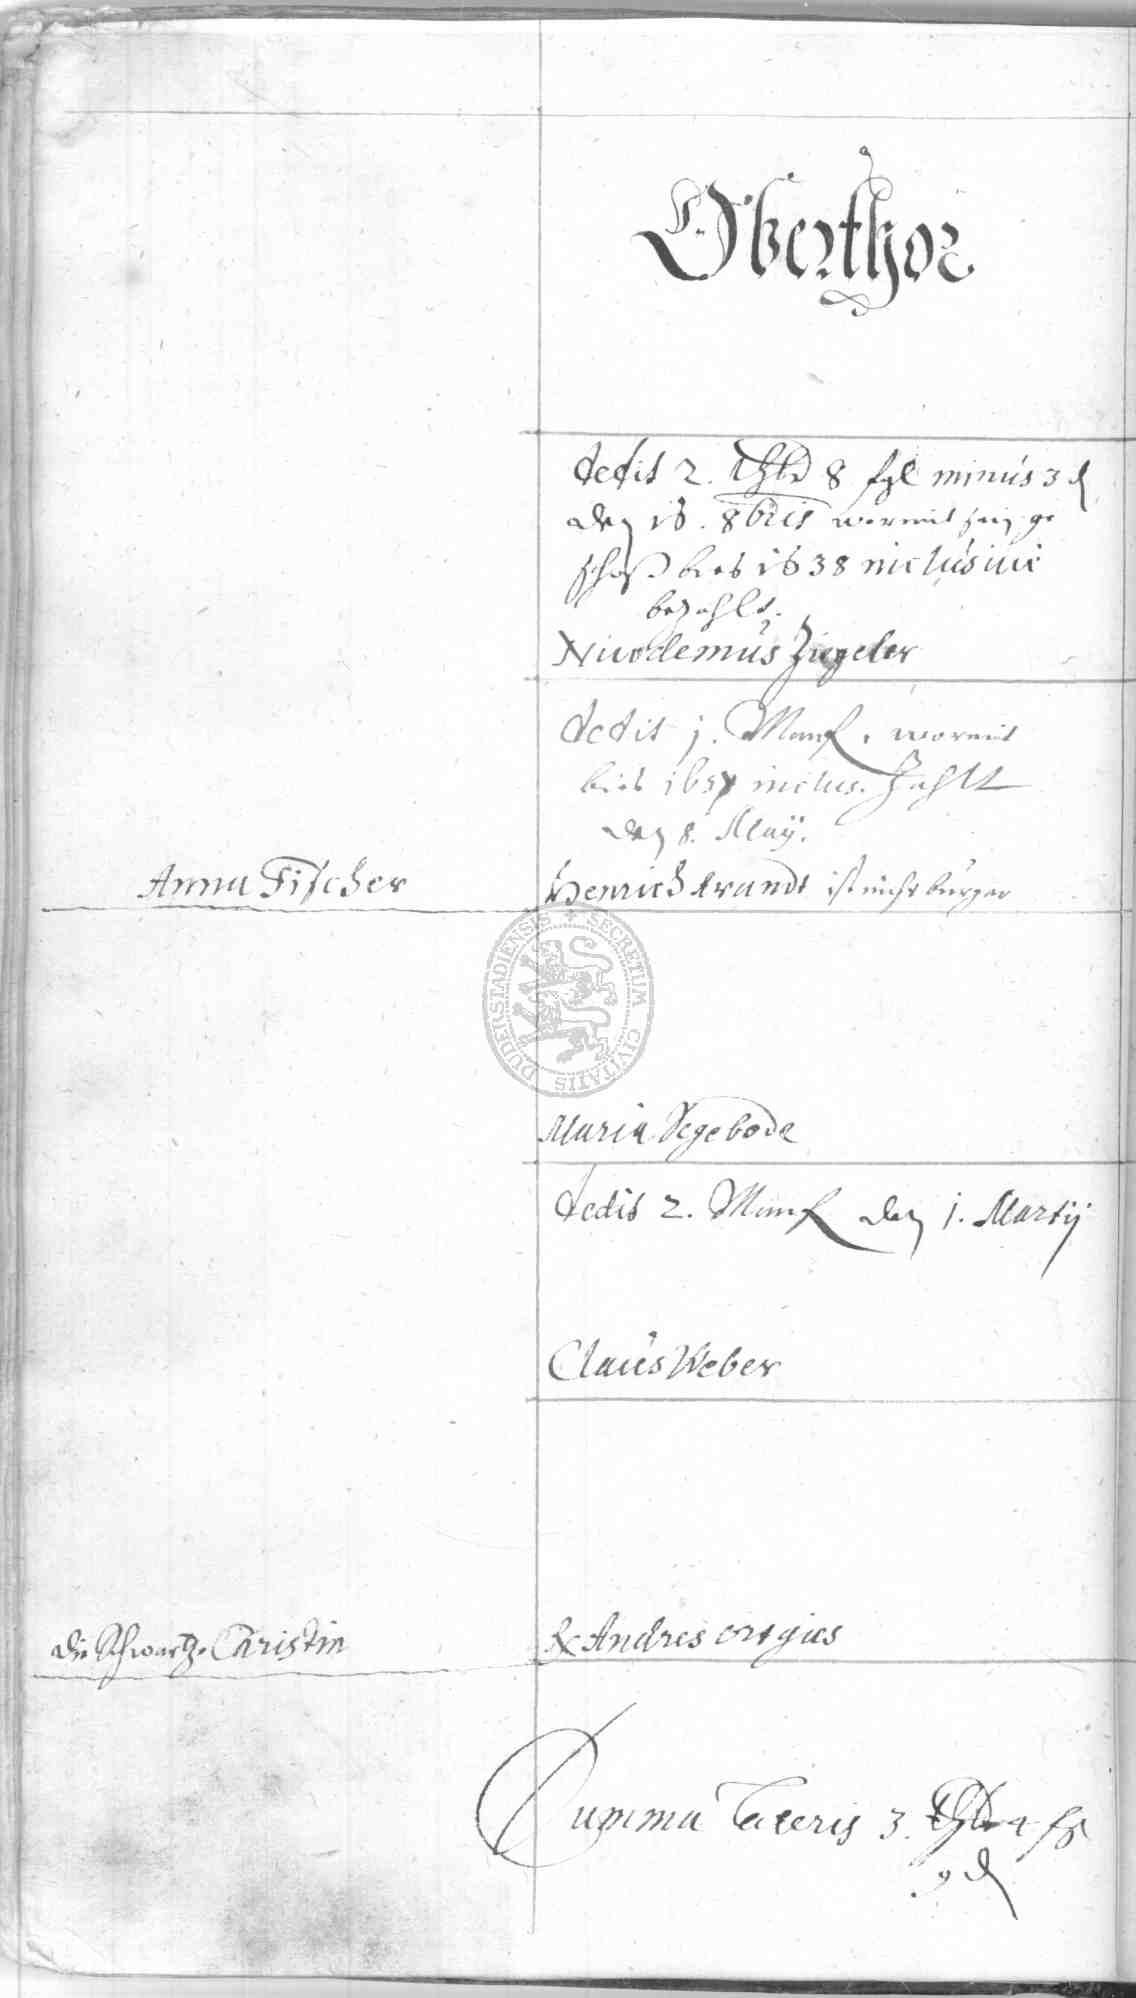 Oberthor
dedit 2. thlr 8 ßgl minus 3 ₰
den 16. 8bris wormit sein ge
schoß bies 1638 inclusiue
bezahlt.
Nicodemus Ziegeler
dedit j. Marck, wormit
bies 1637 inclus. Zahlt
den 8. Maÿ.
Anna Fischer
Henrich brandt ist nicht burger
DUDERSTADIENSIS SECRETUM CIVITATIS
Maria Segebode
dedit 2. Marck den j. Martij
Claus Weber
die Schwartze Christin
Andres
Summa Lateris 3. thlr 4 ßg
9 ₰